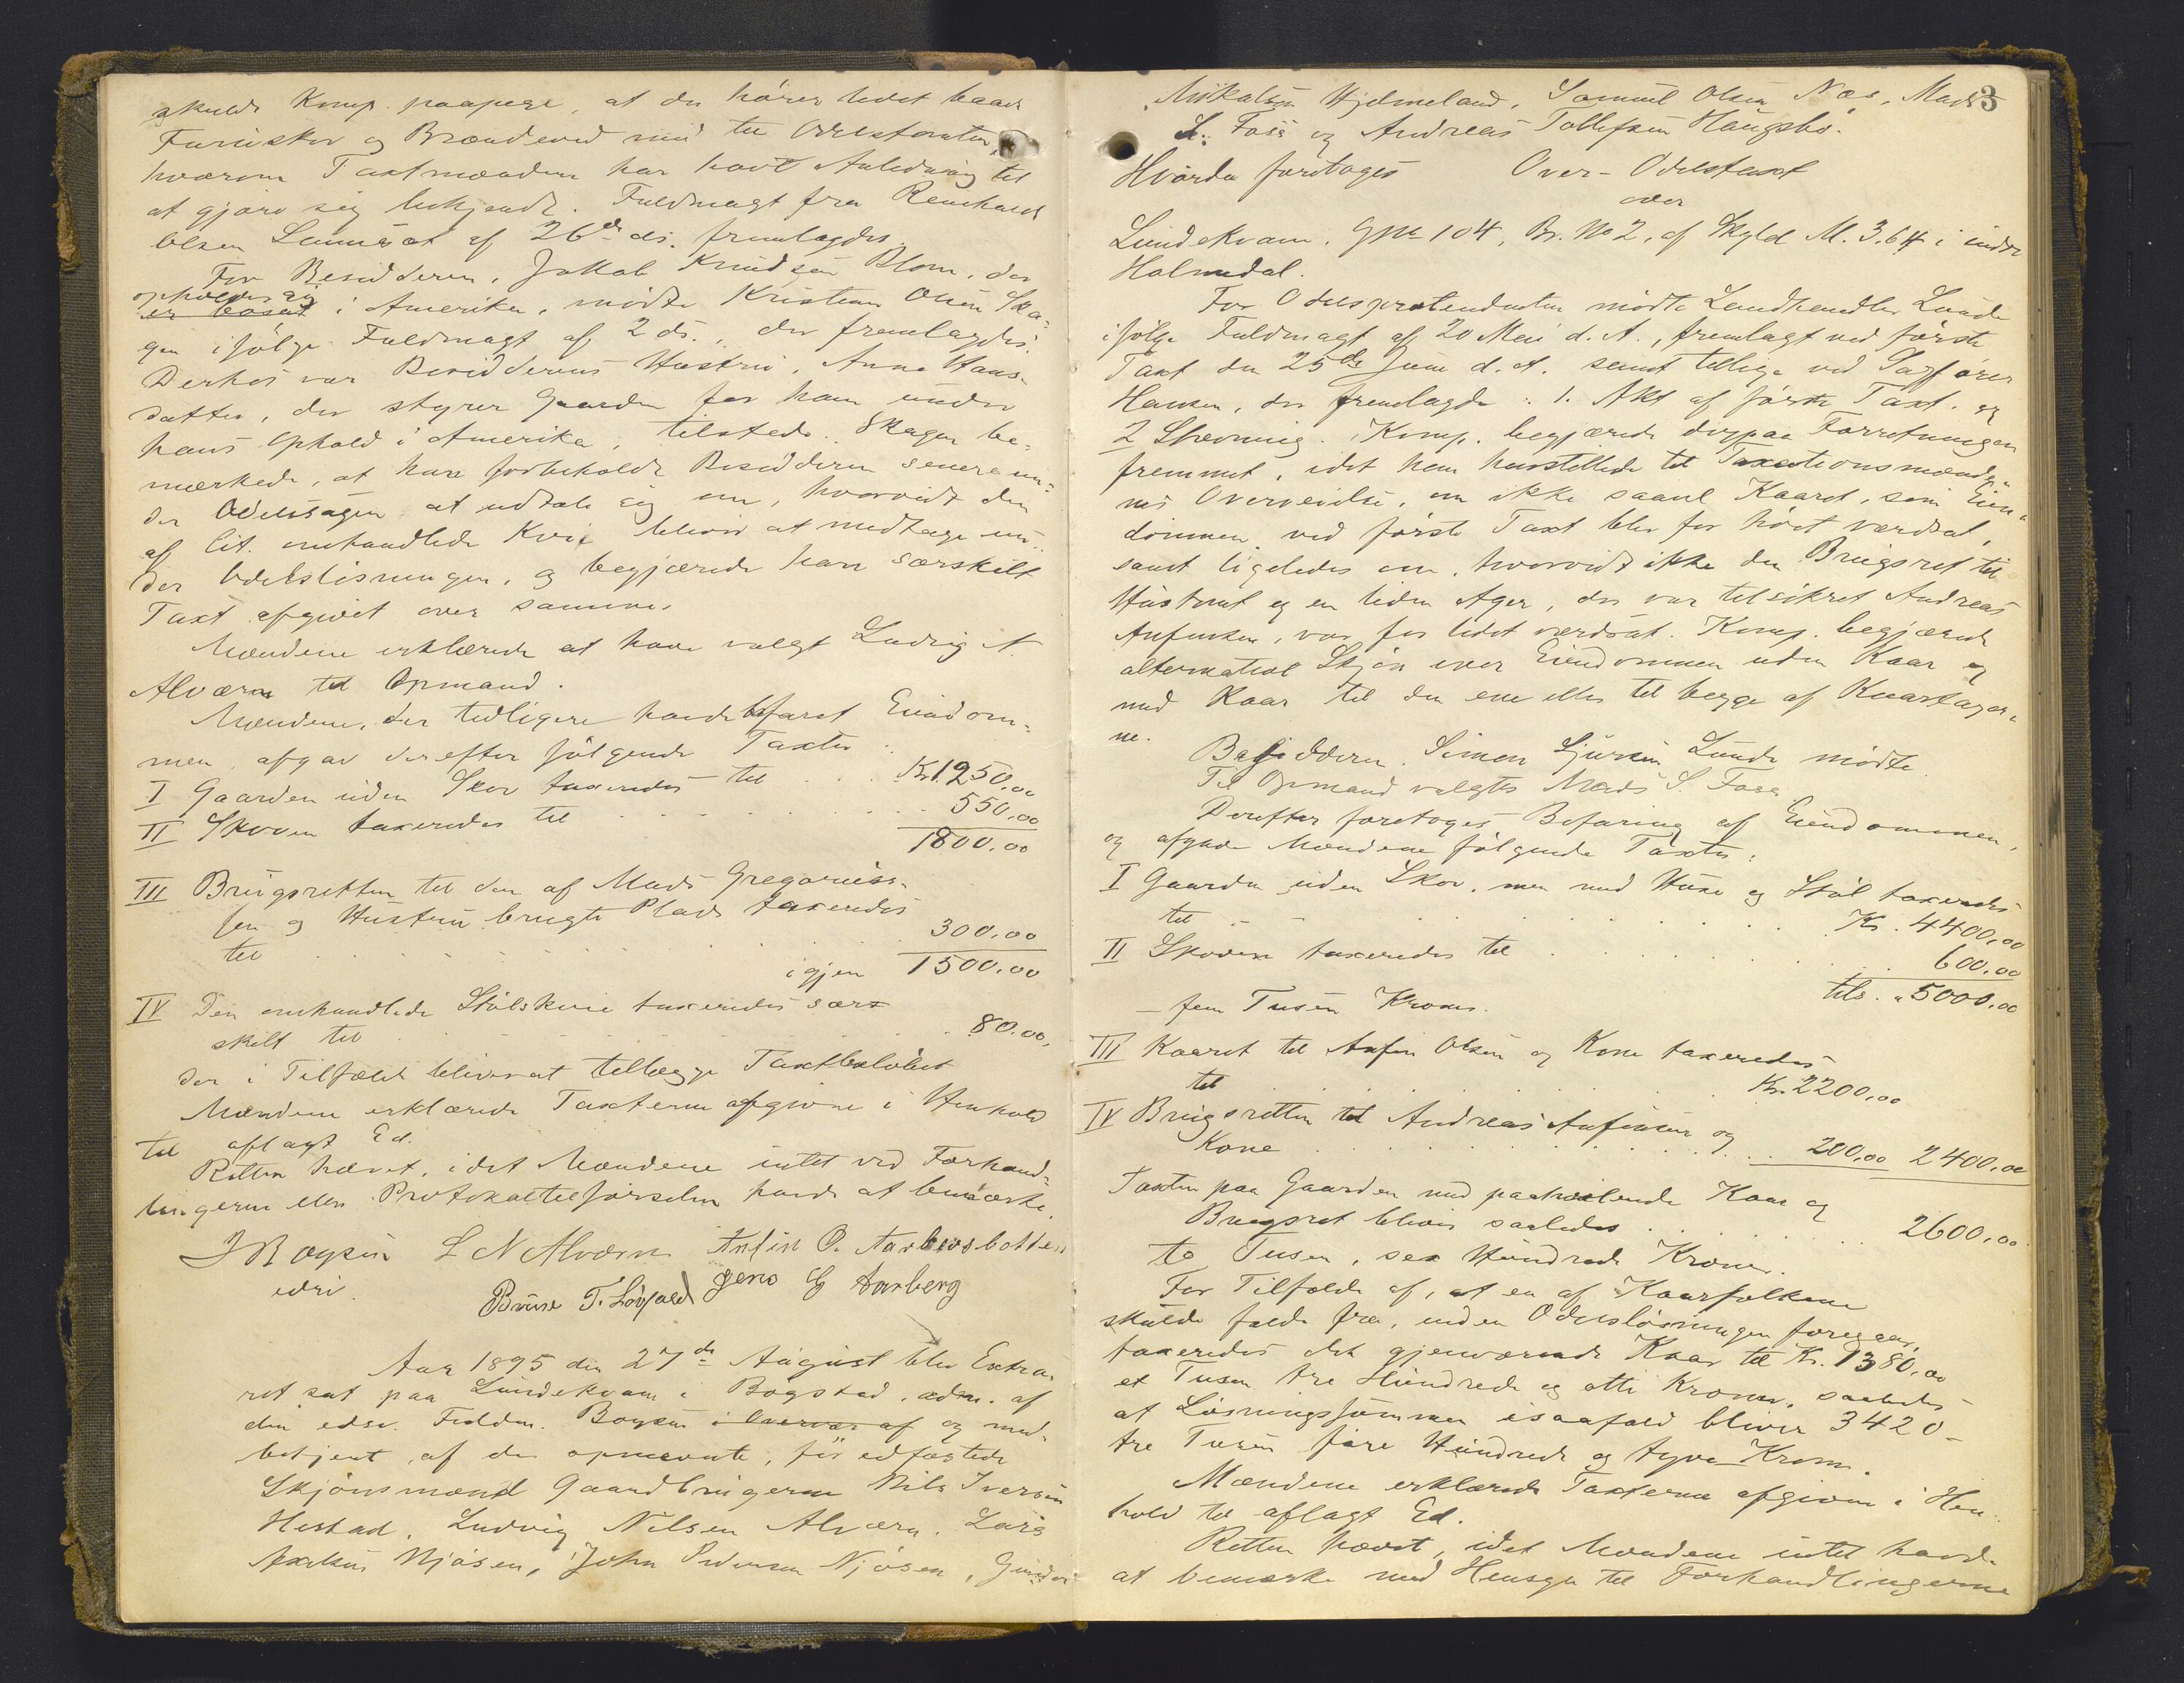 skulde Komp. paapege, at der hører ledet baade
Furuskov og Brændeved med til Odelsforater,
hvorom Taxtmændene har havt Anledning til
at gjøre sig bekjendt. Fuldmagt fra Reinhard
Olsen af 26de ds. fremlagdes
For Besidderen, Jakob Knudsen Blom, der
opholder sig
er bosat i Amerika, mødte Kristian Olsen Ska-
gen ifølge Fuldmagt af 2 ds., der fremlagdes.
Derhos var Besidderens Hustru, Anna Hans-
datter, der styrer Gaarden for ham under
hans Ophold i Amerika, tilstede. Skagen be-
mærkede, at han forbeholdt Besidderen senere un-
der Odelssagen at udtale sig om, hvorvidt den
af Cit. omhandlede Kvie bliver at medtage un-
der Odelsløsningen, og begjærede han særskilt
Taxt afgivet over samme.
Mændene erklærede at have valgt Ludvig N.
Alværn til Opmand.
Mændene, der tidligere havde befaret Eiendom-
men, afgav derefter følgende Taxter:
I Gaarden uden Skov taxeredes til . . . Kr. 1250,00
II Skoven taxeredes til . . . . 550,00
1800,00
III Brugsretten til den af Mads Gregorius-
sen og Hustru brugte Plads taxeredes
til . . . . 300,00
igjen 1500,00
IV Den omhandlede Stølskvie taxeredes sær-
skilt til . . . . 80,00,
der i Tilfælde bliver at tillægge Taxtbeløbet
Mændene erklærede Taxterne afgivne i Henhold
til aflagt Ed.
Retten hævet, idet Mændene intet ved Forhand-
lingerne eller Protokoltilførselen havde at bemærke.
J Boysen L N Alværn Anfin O. Aarbergsbotten
edsv. Brure T. Løvfald Jens G Aarberg
Aar 1895 den 27de August blev Extra-
ret sat paa Lundekvam i Bøgstad, adm. af
den edsv. Fuldm. Boysen i Overvær af og med-
betjent af de opnævnte, før edfæstede
Skjønsmænd Gaardbrugerne Nils Iversen
Hestad, Ludvig Nilsen Alværn, Lars
Axelsen Njøsen, John Pedersen Njøsen, Gunder
3
Mikalsen Hjelmeland, Samuel Olsen Næs, Mads
S. Fosse og Andreas Tollefsen Haugsbø.
Hvorda foretoges Over-Odelstaxt
over
Lundekvam, GNo 104, Br. No 2, af Skyld M. 3,64 i indre
Holmedal.
For Odelsprætendenten mødte Landhandler Lunde
ifølge Fuldmagt af 20 Mai d. A., fremlagt ved første
Taxt den 25de Juni d. A. samt tillige ved Sagfører
Hansen, der fremlagde: 1. Akt af første Taxt. og
2 Stævning. Komp. begjærede derpaa Forretningen
fremmet, idet han henstillede til Taxationsmænde-
nes Overveielse, om ikke saavel Kaaret, som Eien-
dommen ved første Taxt blev for høit værdsat,
samt ligeledes om, hvorvidt ikke den Brugsret til
Hustomt og en liden Ager, der var tilsikret Andreas
Anfinsen, var for lidet værdsat. Komp. begjærede
alternativt Skjøn over Eiendommen uden Kaar og
med Kaar til den ene eller til begge af Kaartager-
ne.
Besidderen Simon Sjursen Lunde mødte
Til Opmand valgtes Mads S. Fosse
Derefter foretoges Befaring af Eiendommen,
og afgave Mændene følgende Taxter:
I Gaarden uden Skov, men med Huse og Støl taxeredes
til . . . . Kr. 4400,00
II Skoven taxeredes til . . . . 600,00
tils. " 5000,00
– fem Tusen Kroner.
III Kaaret til Anfin Olsen og Kone taxeredes
til . . . . Kr. 2200,00
IV Brugsretten til Andreas Anfinsen og
Kone . . . . 200,00 2400,00
Taxten paa Gaarden med paahvilende Kaar og
Brugsret bliver saaledes . . . . 2600,00
to Tusen, sex Hundrede Kroner.
For Tilfælde af, at en af Kaarfolkene
skulde falde fra, inden Odelsløsningen foregaar,
taxeredes det gjenværende Kaar til Kr. 1380,00
et Tusen tre Hundrede og otti Kroner, saaledes
at Løsningssummen isaafald bliver 3420 –
tre Tusen fire Hundrede og tyve Kroner.
Mændene erklærede Taxterne afgivne i Hen-
hold til aflagt Ed.
Retten hævet, idet Mændene intet havde
at bemærke med Hensyn til Forhandlingerne